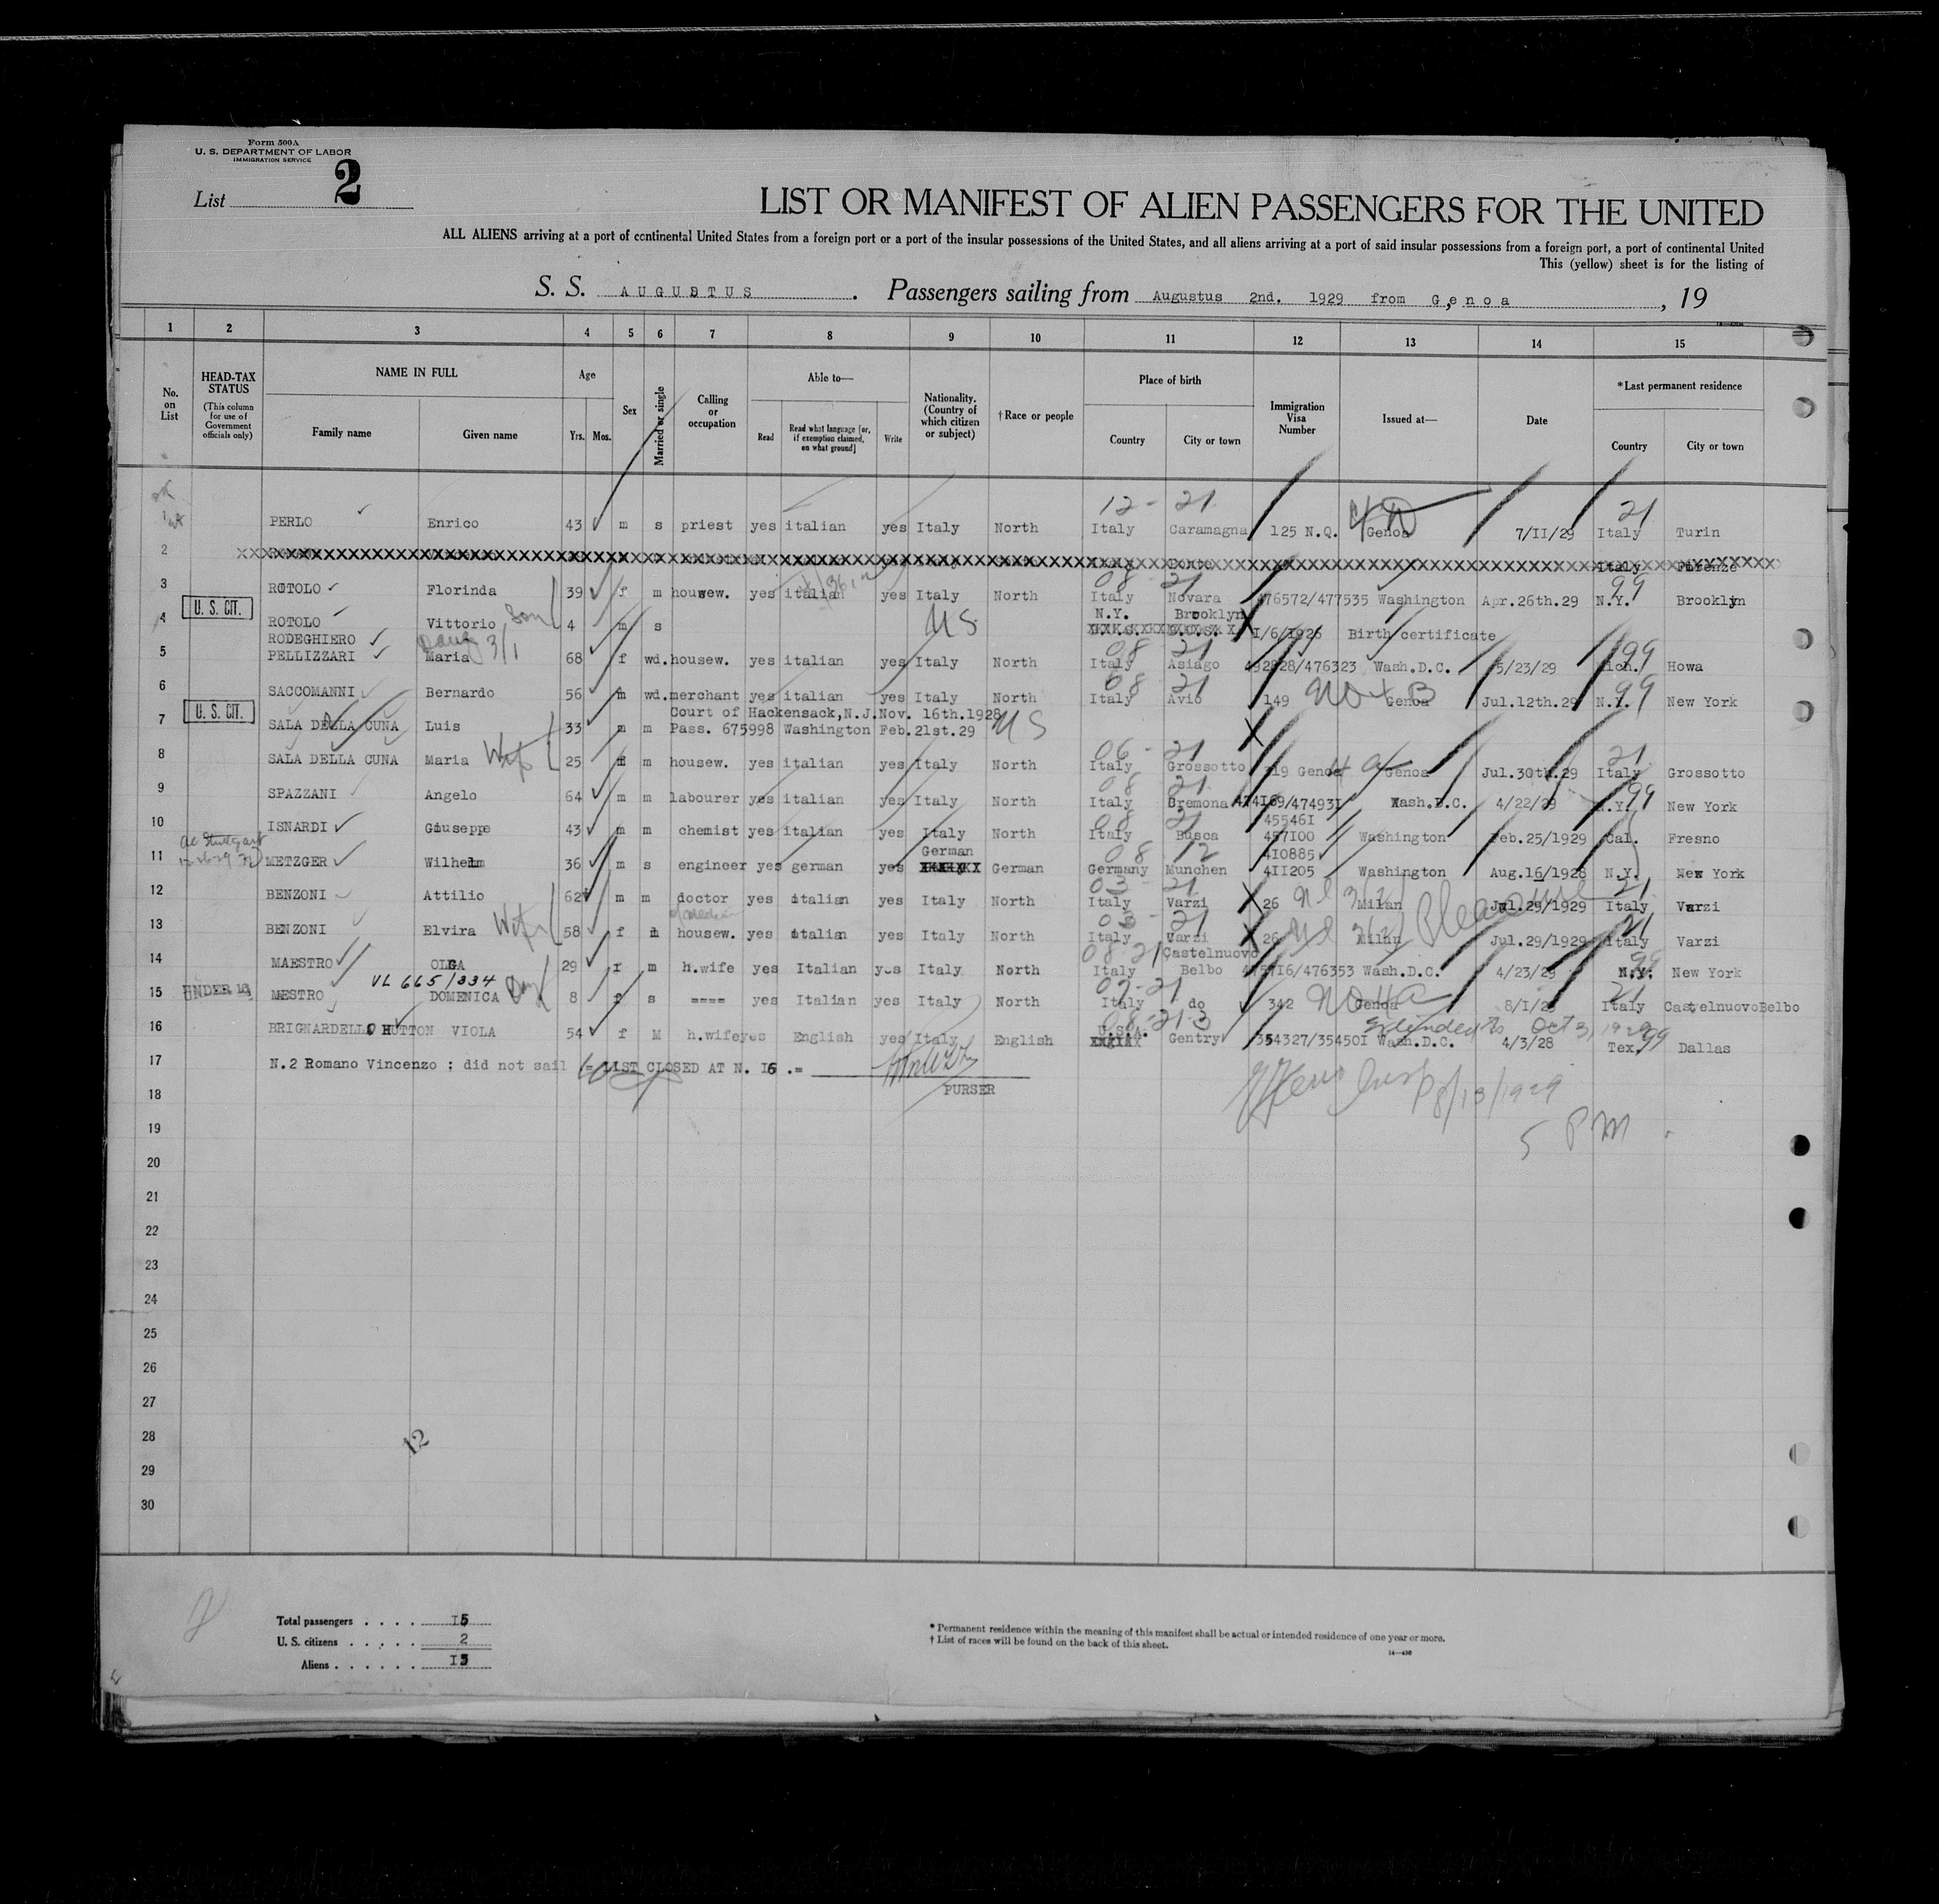 Form 500A
U. S. DEPARTMENT OF LABOR
IMMIGRATION SERVICE
List 2
LIST OR MANIFEST OF ALIEN PASSENGERS FOR THE UNITED
ALL ALIENS arriving at a port of continental United States from a foreign port or a port of the insular possessions of the United States, and all aliens arriving at a port of said insular possessions from a foreign port, a port of continental United
This (yellow) sheet is for the listing of
S. S. AUGUSTUS . Passengers sailing from Augustus 2nd. 1929 from Genoa , 19
1 2 3 4 5 6 7 8 9 10 11 12 13 14 15
No. on List
HEAD-TAX STATUS (This column for use of Government officials only)
NAME IN FULL Family name Given name
Age Yrs. Mos.
Sex
Married or single
Calling or occupation
Able to— Read Read what language [or, if exemption claimed, on what ground] Write
Nationality. (Country of which citizen or subject)
†Race or people
Place of birth Country City or town
Immigration Visa Number
Issued at—
Date
*Last permanent residence Country City or town
12 - 21 21
PERLO Enrico 43 m s priest yes italian yes Italy North Italy Caramagna 125 N.Q. Genoa 7/II/29 Italy Turin
2 Italy Firenze
08 21 99
3 ROTOLO Florinda 39 f m housew. yes italian yes Italy North Italy Novara 476572/477535 Washington Apr.26th.29 N.Y. Brooklyn
4 U. S. CIT. ROTOLO Vittorio Son 4 m s US N.Y. Brooklyn I/6/I926 Birth certificate
RODEGHIERO
08 21 99
5 PELLIZZARI Maria 68 f wd. housew. yes italian yes Italy North Italy Asiago 492828/476323 Wash.D.C. 5/23/29 Mich. Howa
08 21 99
6 SACCOMANNI Bernardo 56 m wd. merchant yes italian yes Italy North Italy Avio 149 Genoa Jul.12th.29 N.Y. New York
Court of Hackensack,N.J.Nov. 16th.1928
7 U. S. CIT. SALA DELLA CUNA Luis 33 m m Pass. 675998 Washington Feb.21st.29 US
06 - 21 21
8 SALA DELLA CUNA Maria Wife 25 f m housew. yes italian yes Italy North Italy Grossotto 219 Genoa Genoa Jul.30th.29 Italy Grossotto
08 21 99
9 SPAZZANI Angelo 64 m m labourer yes italian yes Italy North Italy Cremona 474I69/47493I Wash.D.C. 4/22/29 N.Y. New York
45546I
10 ISNARDI Giuseppe 43 m m chemist yes italian yes Italy North Italy Busca 457I00 Washington Feb.25/1929 Cal. Fresno
08 12 German 4I0885
11 METZGER Wilhelm 36 m s engineer yes german yes German Germany Munchen 4II205 Washington Aug.16/1928 N.Y. New York
03 21 21
12 BENZONI Attilio 62 m m doctor yes italian yes Italy North Italy Varzi 26 Milan Jul.29/1929 Italy Varzi
03 - 21 21
13 BENZONI Elvira Wife 58 f m housew. yes italian yes Italy North Italy Varzi 26 Milan Jul.29/1929 Italy Varzi
08 21 Castelnuovo 99
14 MAESTRO OLGA 29 f m h.wife yes Italian yes Italy North Italy Belbo /476353 Wash.D.C. 4/23/29 N.Y. New York
VL 665/334
15 UNDER 16 MESTRO DOMENICA 8 f s ==== yes Italian yes Italy North Italy do 342 Genoa 8/I/29 Italy CastelnuovoBelbo
Extended to Oct 3, 1929
16 BRIGNARDELLO HUTTON VIOLA 54 f M h.wife yes English yes Italy English U.S.A. Gentry 354327/35450I Wash.D.C. 4/3/28 Tex. 99 Dallas
17 N.2 Romano Vincenzo ; did not sail = LIST CLOSED AT N. I6 .=
PURSER
18
8/13/1929
5 PM
19
20
21
22
23
24
25
26
27
28
12
29
30
Total passengers . . . . I5
U. S. citizens . . . . . 2
Aliens . . . . . . I3
* Permanent residence within the meaning of this manifest shall be actual or intended residence of one year or more.
† List of races will be found on the back of this sheet.
14—430